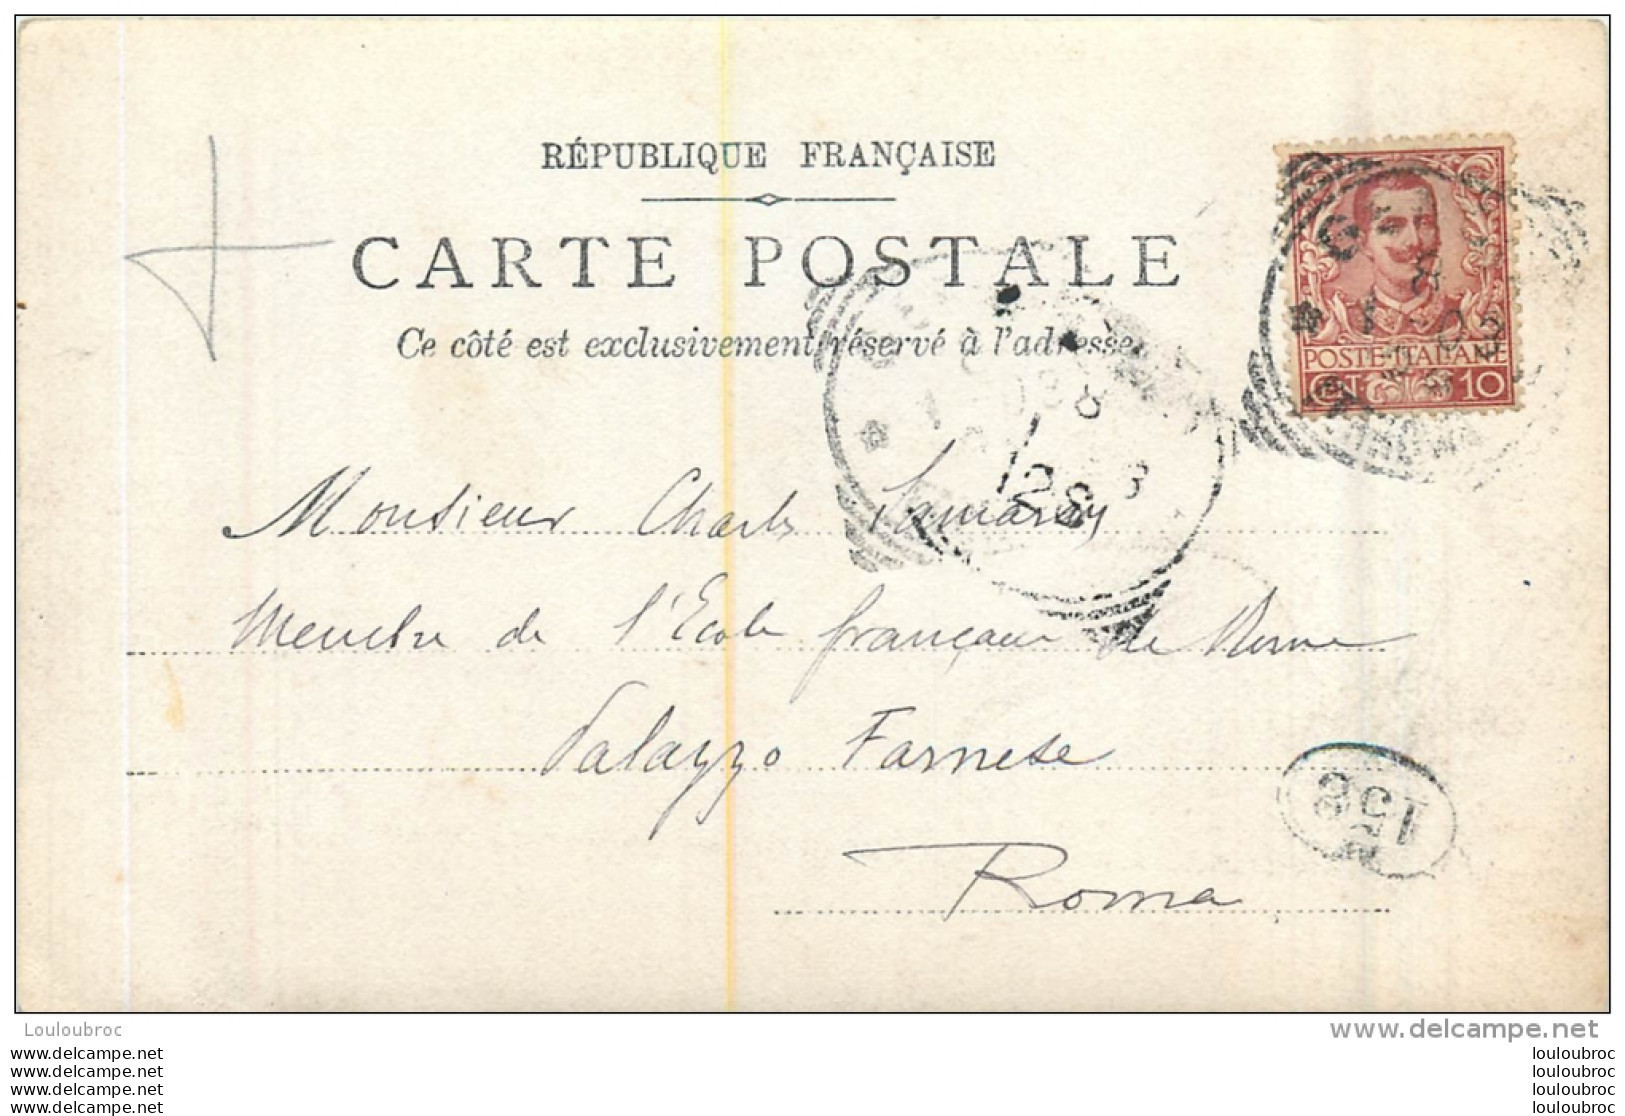 RÉPUBLIQUE FRANÇAISE
CARTE POSTALE
Ce côté est exclusivement réservé à l'adresse
POSTE ITALIANE
CT 10
Monsieur Charles Samaran
Membre de l'Ecole française de Rome
Palazzo Farnese
Roma
158
Louloubroc
delcampe.net
www.delcampe.net
www.delcampe.net
www.delcampe.net
www.delcampe.net
louloubroc
louloubroc
louloubroc
louloubroc